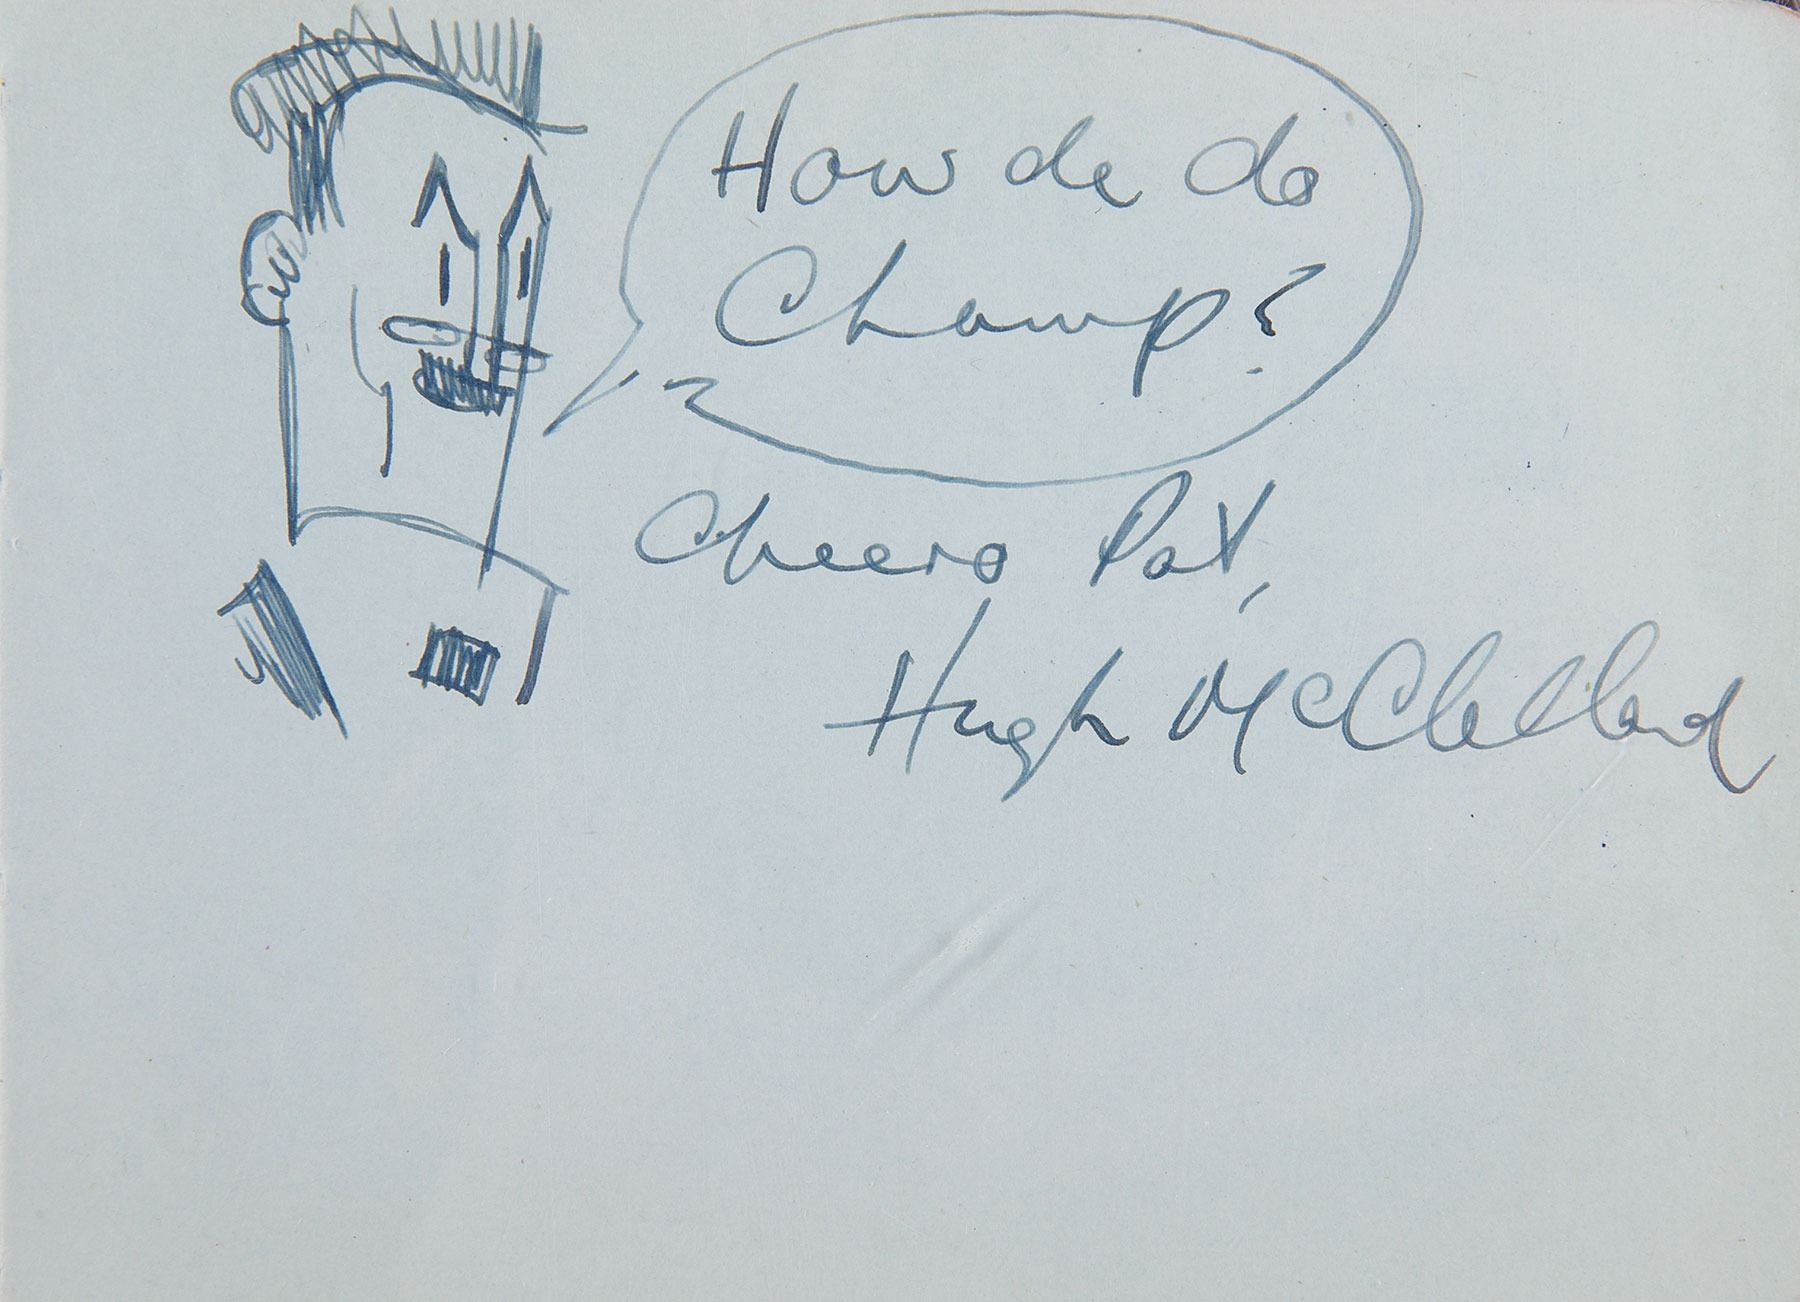 How de do
Champ?
Cheers Pat,
Hugh McClelland